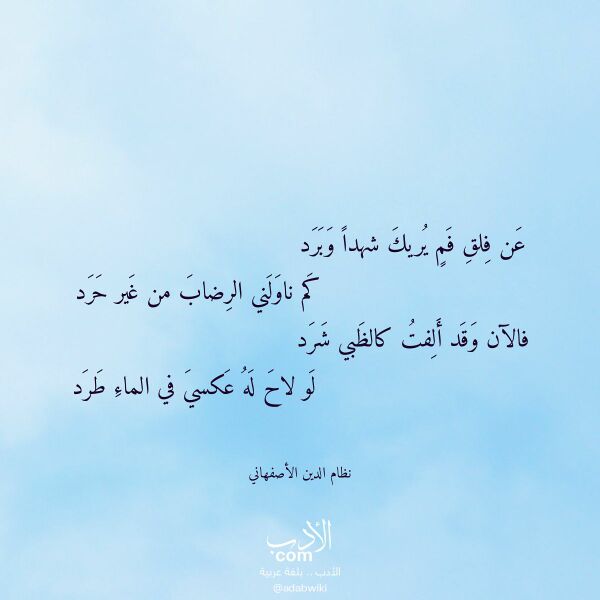 عَن فِلقِ فَمٍ يُريكَ شهداً وَبَرَد
كَم ناوَلَني الرِضابَ من غَير حَرَد
فالآن وَقَد أَلِفتُ كالظَبي شَرَد
لَو لاحَ لَهُ عَكسيَ في الماءِ طَرَد
نظام الدين الأصفهاني
الأدب
.com
الأدب .. بلغة عربية
@adabwiki